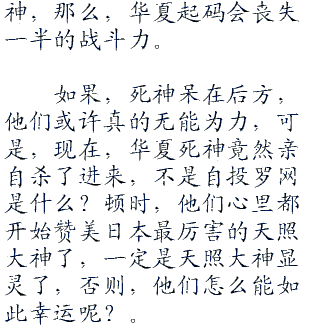 神，那么，华夏起码会丧失
一半的战斗力。
如果，死神呆在后方，
他们或许真的无能为力，可
是，现在，华夏死神竟然亲
自杀了进来，不是自投罗网
是什么？顿时，他们心里都
开始赞美日本最厉害的天照
大神了，一定是天照大神显
灵了，否则，他们怎么能如
此幸运呢？。